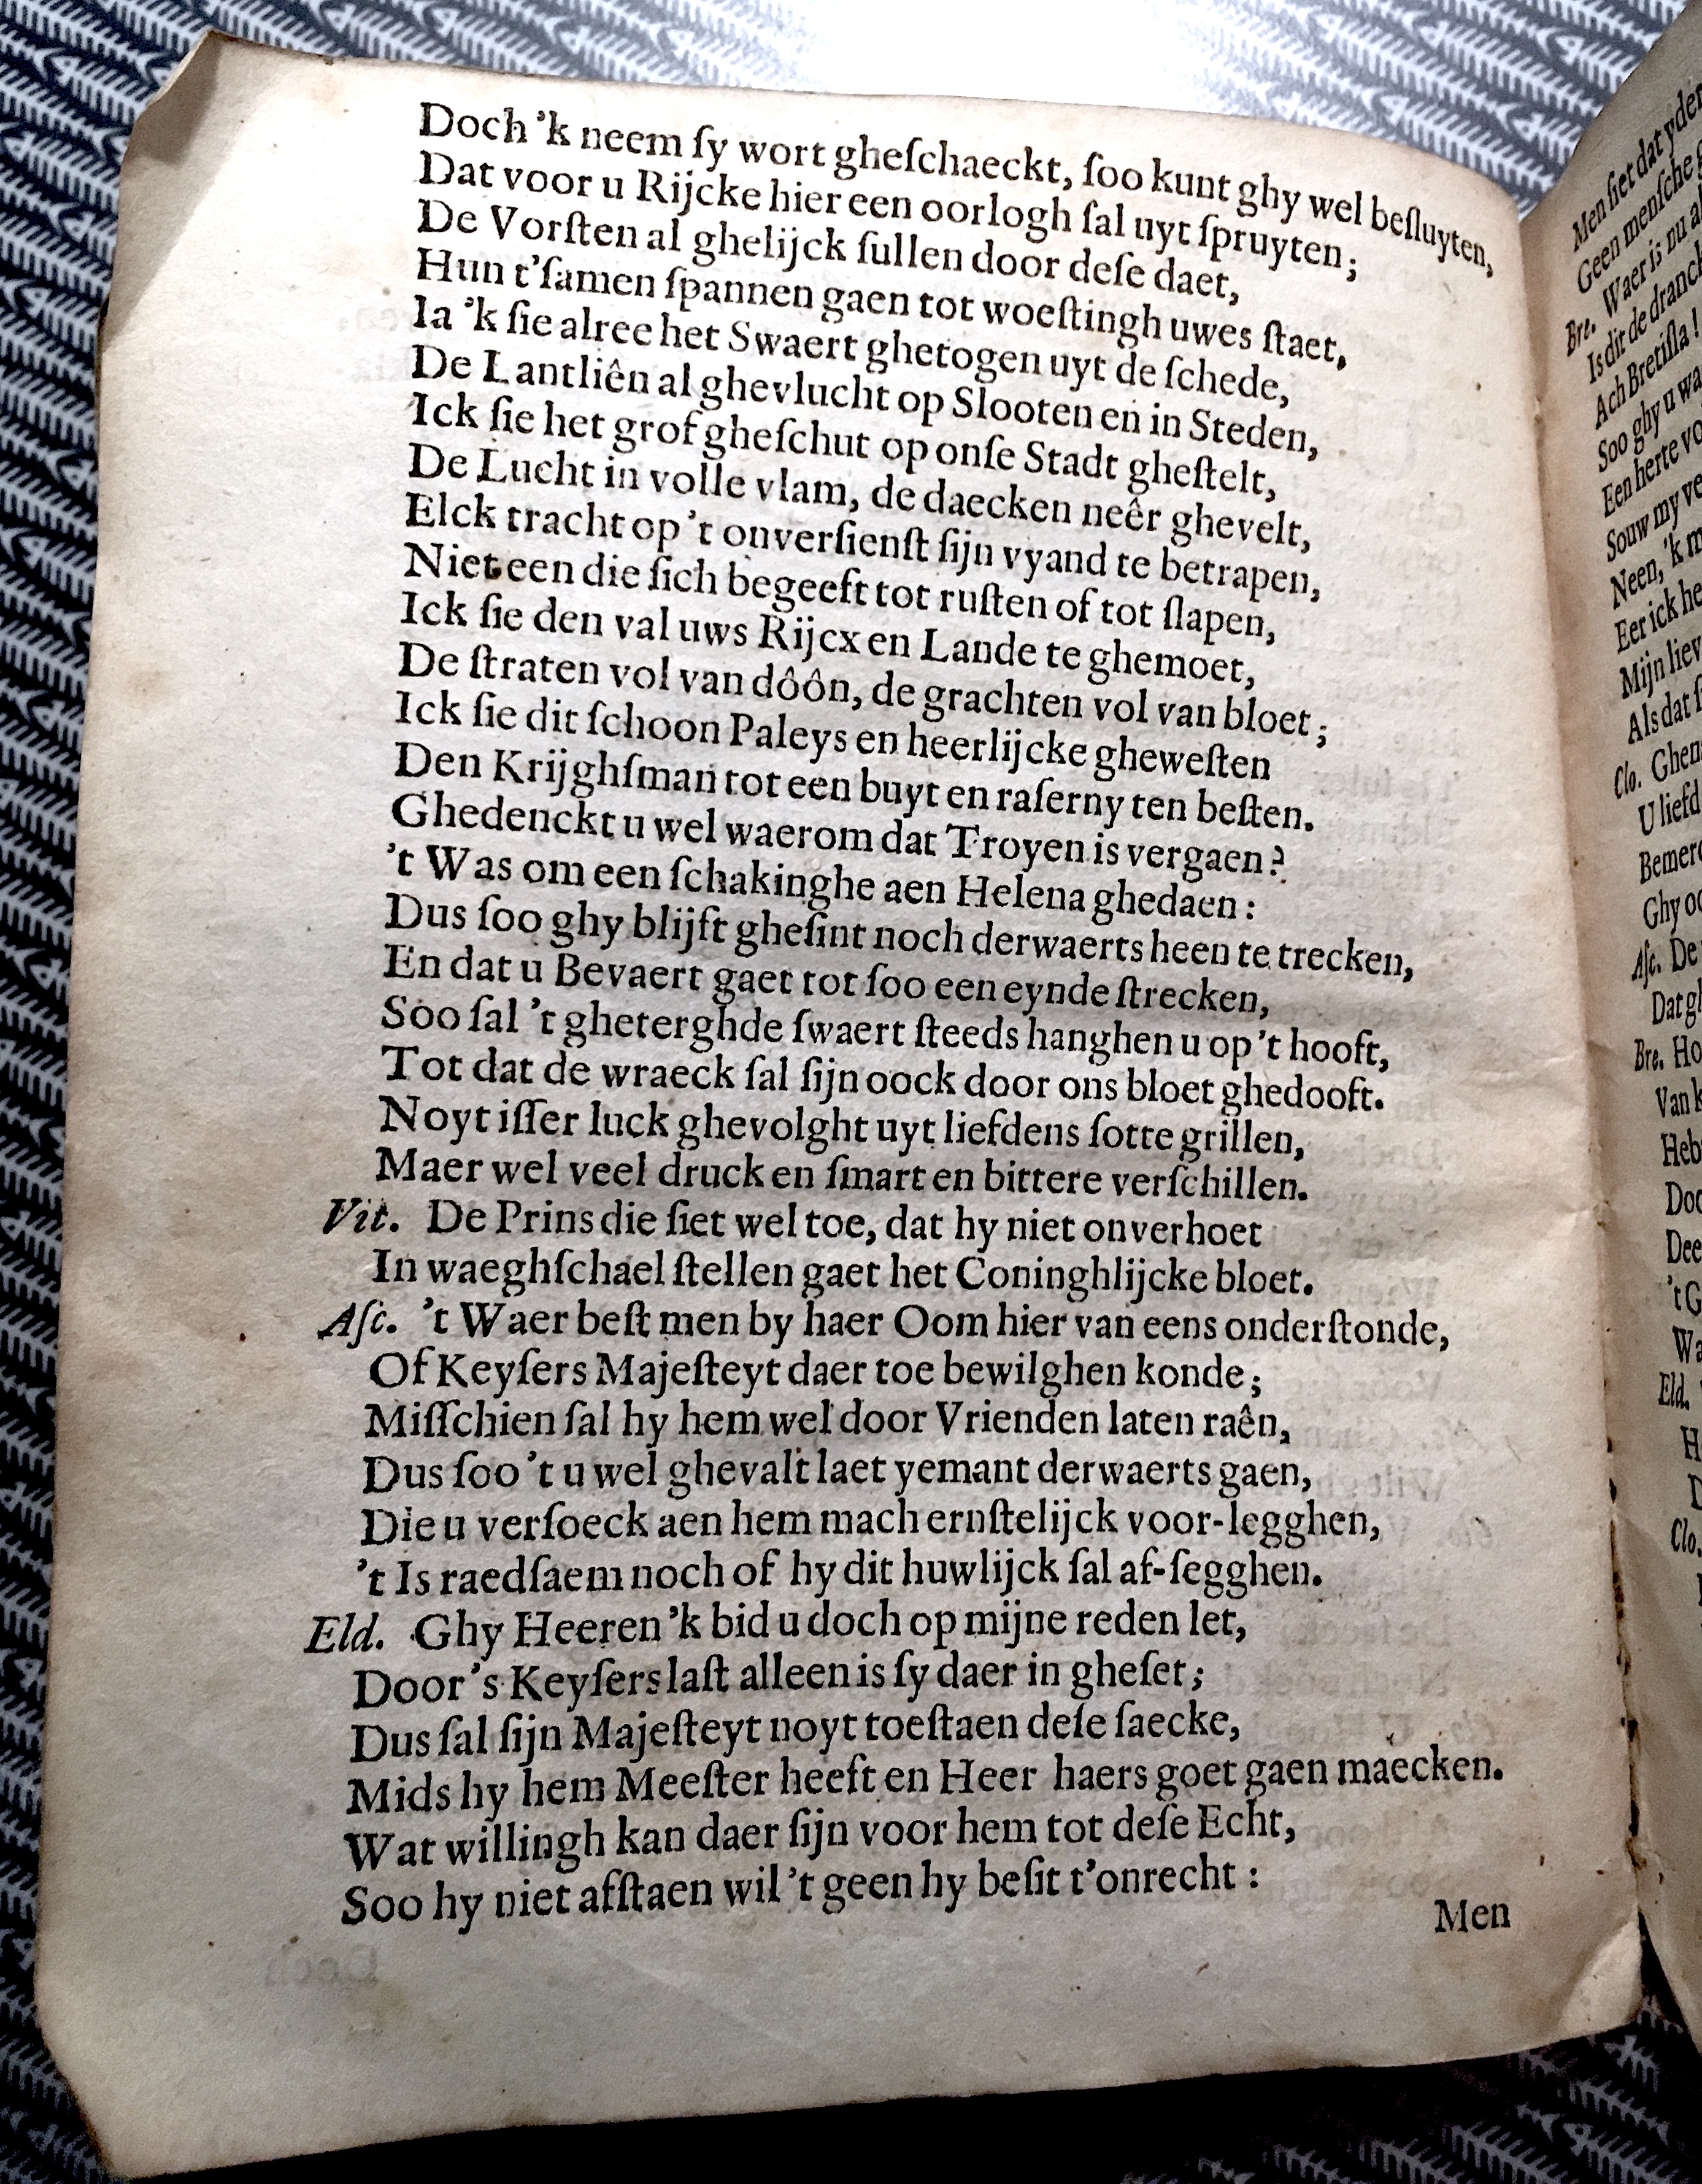 Doch ’k neem ſy wort gheſchaeckt, ſoo kunt ghy wel beſluyten,
Dat voor u Rijcke hier een oorlogh ſal uyt ſpruyten;
De Vorſten al ghelijck ſullen door deſe daet,
Hun t’ſamen ſpannen gaen tot woeſtingh uwes ſtaet,
Ia ’k ſie alree het Swaert ghetogen uyt de ſchede,
De Lantliên al ghevlucht op Slooten en in Steden,
Ick ſie het grof gheſchut op onſe Stadt gheſtelt,
De Lucht in volle vlam, de daecken neêr ghevelt,
Elck tracht op ’t onverſienſt ſijn vyand te betrapen,
Niet een die ſich begeeft tot ruſten of tot ſlapen,
Ick ſie den val uws Rijcx en Lande te ghemoet,
De ſtraten vol van dôôn, de grachten vol van bloet;
Ick ſie dit ſchoon Paleys en heerlijcke gheweſten
Den Krijghſman tot een buyt en raſerny ten beſten.
Ghedenckt u wel waerom dat Troyen is vergaen?
’t Was om een ſchakinghe aen Helena ghedaen:
Dus ſoo ghy blijft gheſint noch derwaerts heen te trecken,
En dat u Bevaert gaet tot ſoo een eynde ſtrecken,
Soo ſal ’t gheterghde ſwaert ſteeds hanghen u op ’t hooft,
Tot dat de wraeck ſal ſijn oock door ons bloet ghedooft.
Noyt iſſer luck ghevolght uyt liefdens ſotte grillen,
Maer wel veel druck en ſmart en bittere verſchillen.
Vit. De Prins die ſiet wel toe, dat hy niet onverhoet
In waeghſchael ſtellen gaet het Coninghlijcke bloet.
Aſc. ’t Waer beſt men by haer Oom hier van eens onderſtonde,
Of Keyſers Majeſteyt daer toe bewilghen konde;
Miſſchien ſal hy hem wel door Vrienden laten raên,
Dus ſoo ’t u wel ghevalt laet yemant derwaerts gaen,
Die u verſoeck aen hem mach ernſtelijck voor-legghen,
’t Is raedſaem noch of hy dit huwlijck ſal af-ſegghen.
Eld. Ghy Heeren ’k bid u doch op mijne reden let,
Door ’s Keyſers laſt alleen is ſy daer in gheſet;
Dus ſal ſijn Majeſteyt noyt toeſtaen deſe ſaecke,
Mids hy hem Meeſter heeft en Heer haers goet gaen maecken.
Wat willingh kan daer ſijn voor hem tot deſe Echt,
Soo hy niet afſtaen wil ’t geen hy beſit t’onrecht:
Men
Men ſiet dat yder
Geen menſche
Bre. Waer is nu
Is dit de dranck
Ach Bretiſla!
Soo ghy u
Een herte
Souw my
Neen, ’k
Eer ick
Mijn
Als dat
Clo.
U
Ghy
Aſc. De
Dat
Bre.
Van
Eld.
Clo.